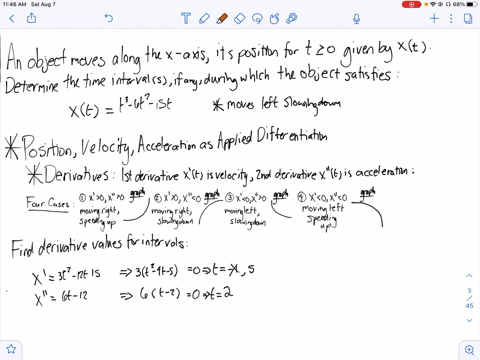 11:46 AM Sat Aug 7
68%
An object moves along the x-axis, its position for t ≥ 0 given by x(t).
Determine the time interval(s), if any, during which the object satisfies:
x(t) = t³-6t²-15t * moves left slowing down
* Position, Velocity, Acceleration as Applied Differentiation
* Derivatives: 1st derivative x'(t) is velocity, 2nd derivative x"(t) is acceleration:
Four Cases: ① x'>0, x">0 graph ② x'>0, x"<0 graph ③ x'<0, x">0 graph ④ x'<0, x"<0 graph
moving right, moving right, moving left, moving left
speeding up slowing down slowing down speeding up
Find derivative values for intervals:
x' = 3t²-12t-15 ⇒ 3(t²-4t-5) =0 ⇒ t= -1, 5
x" = 6t-12 ⇒ 6(t-2) =0 ⇒ t=2
3
/
45